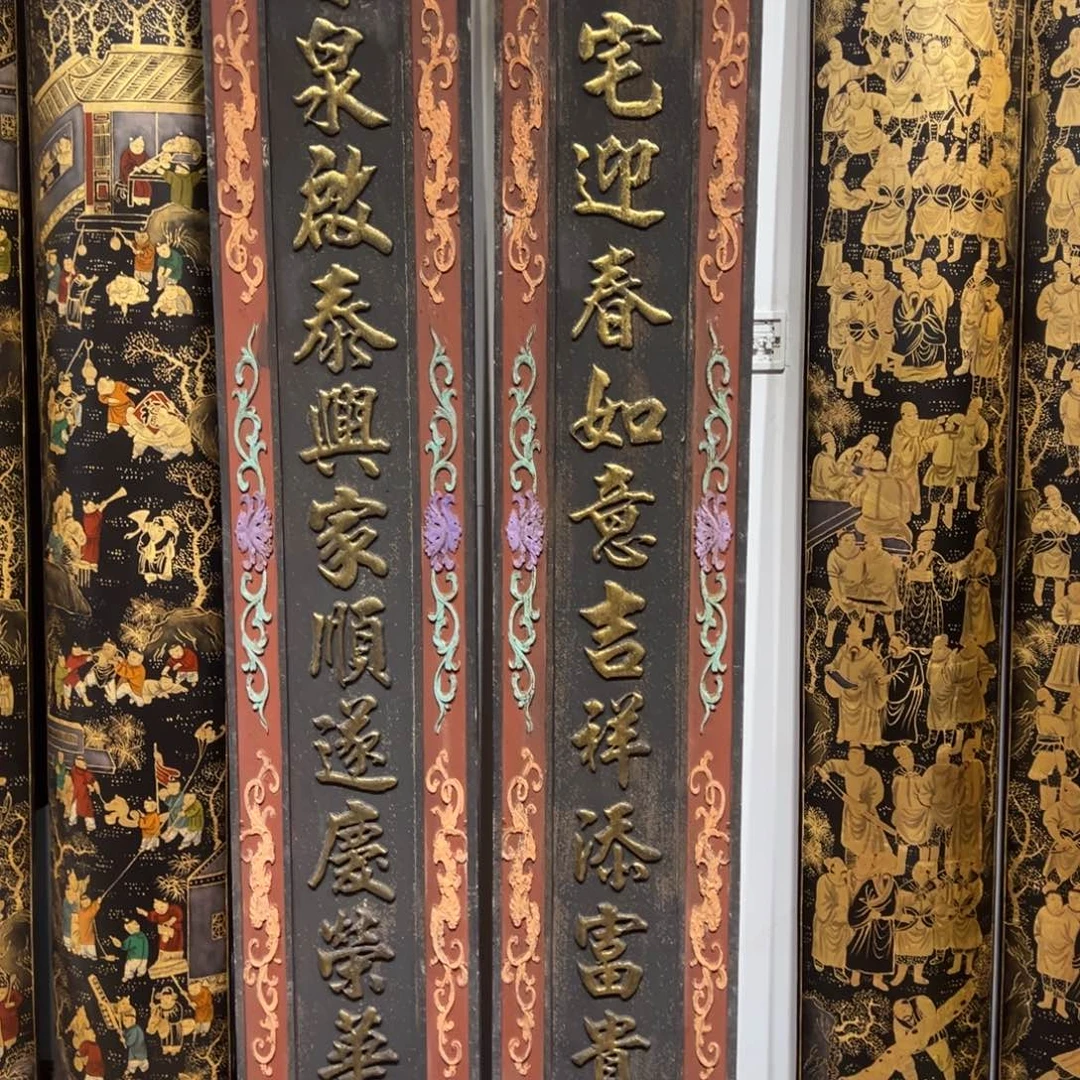 宅迎春如意吉祥添富貴
泉啟泰興家順遂慶榮華